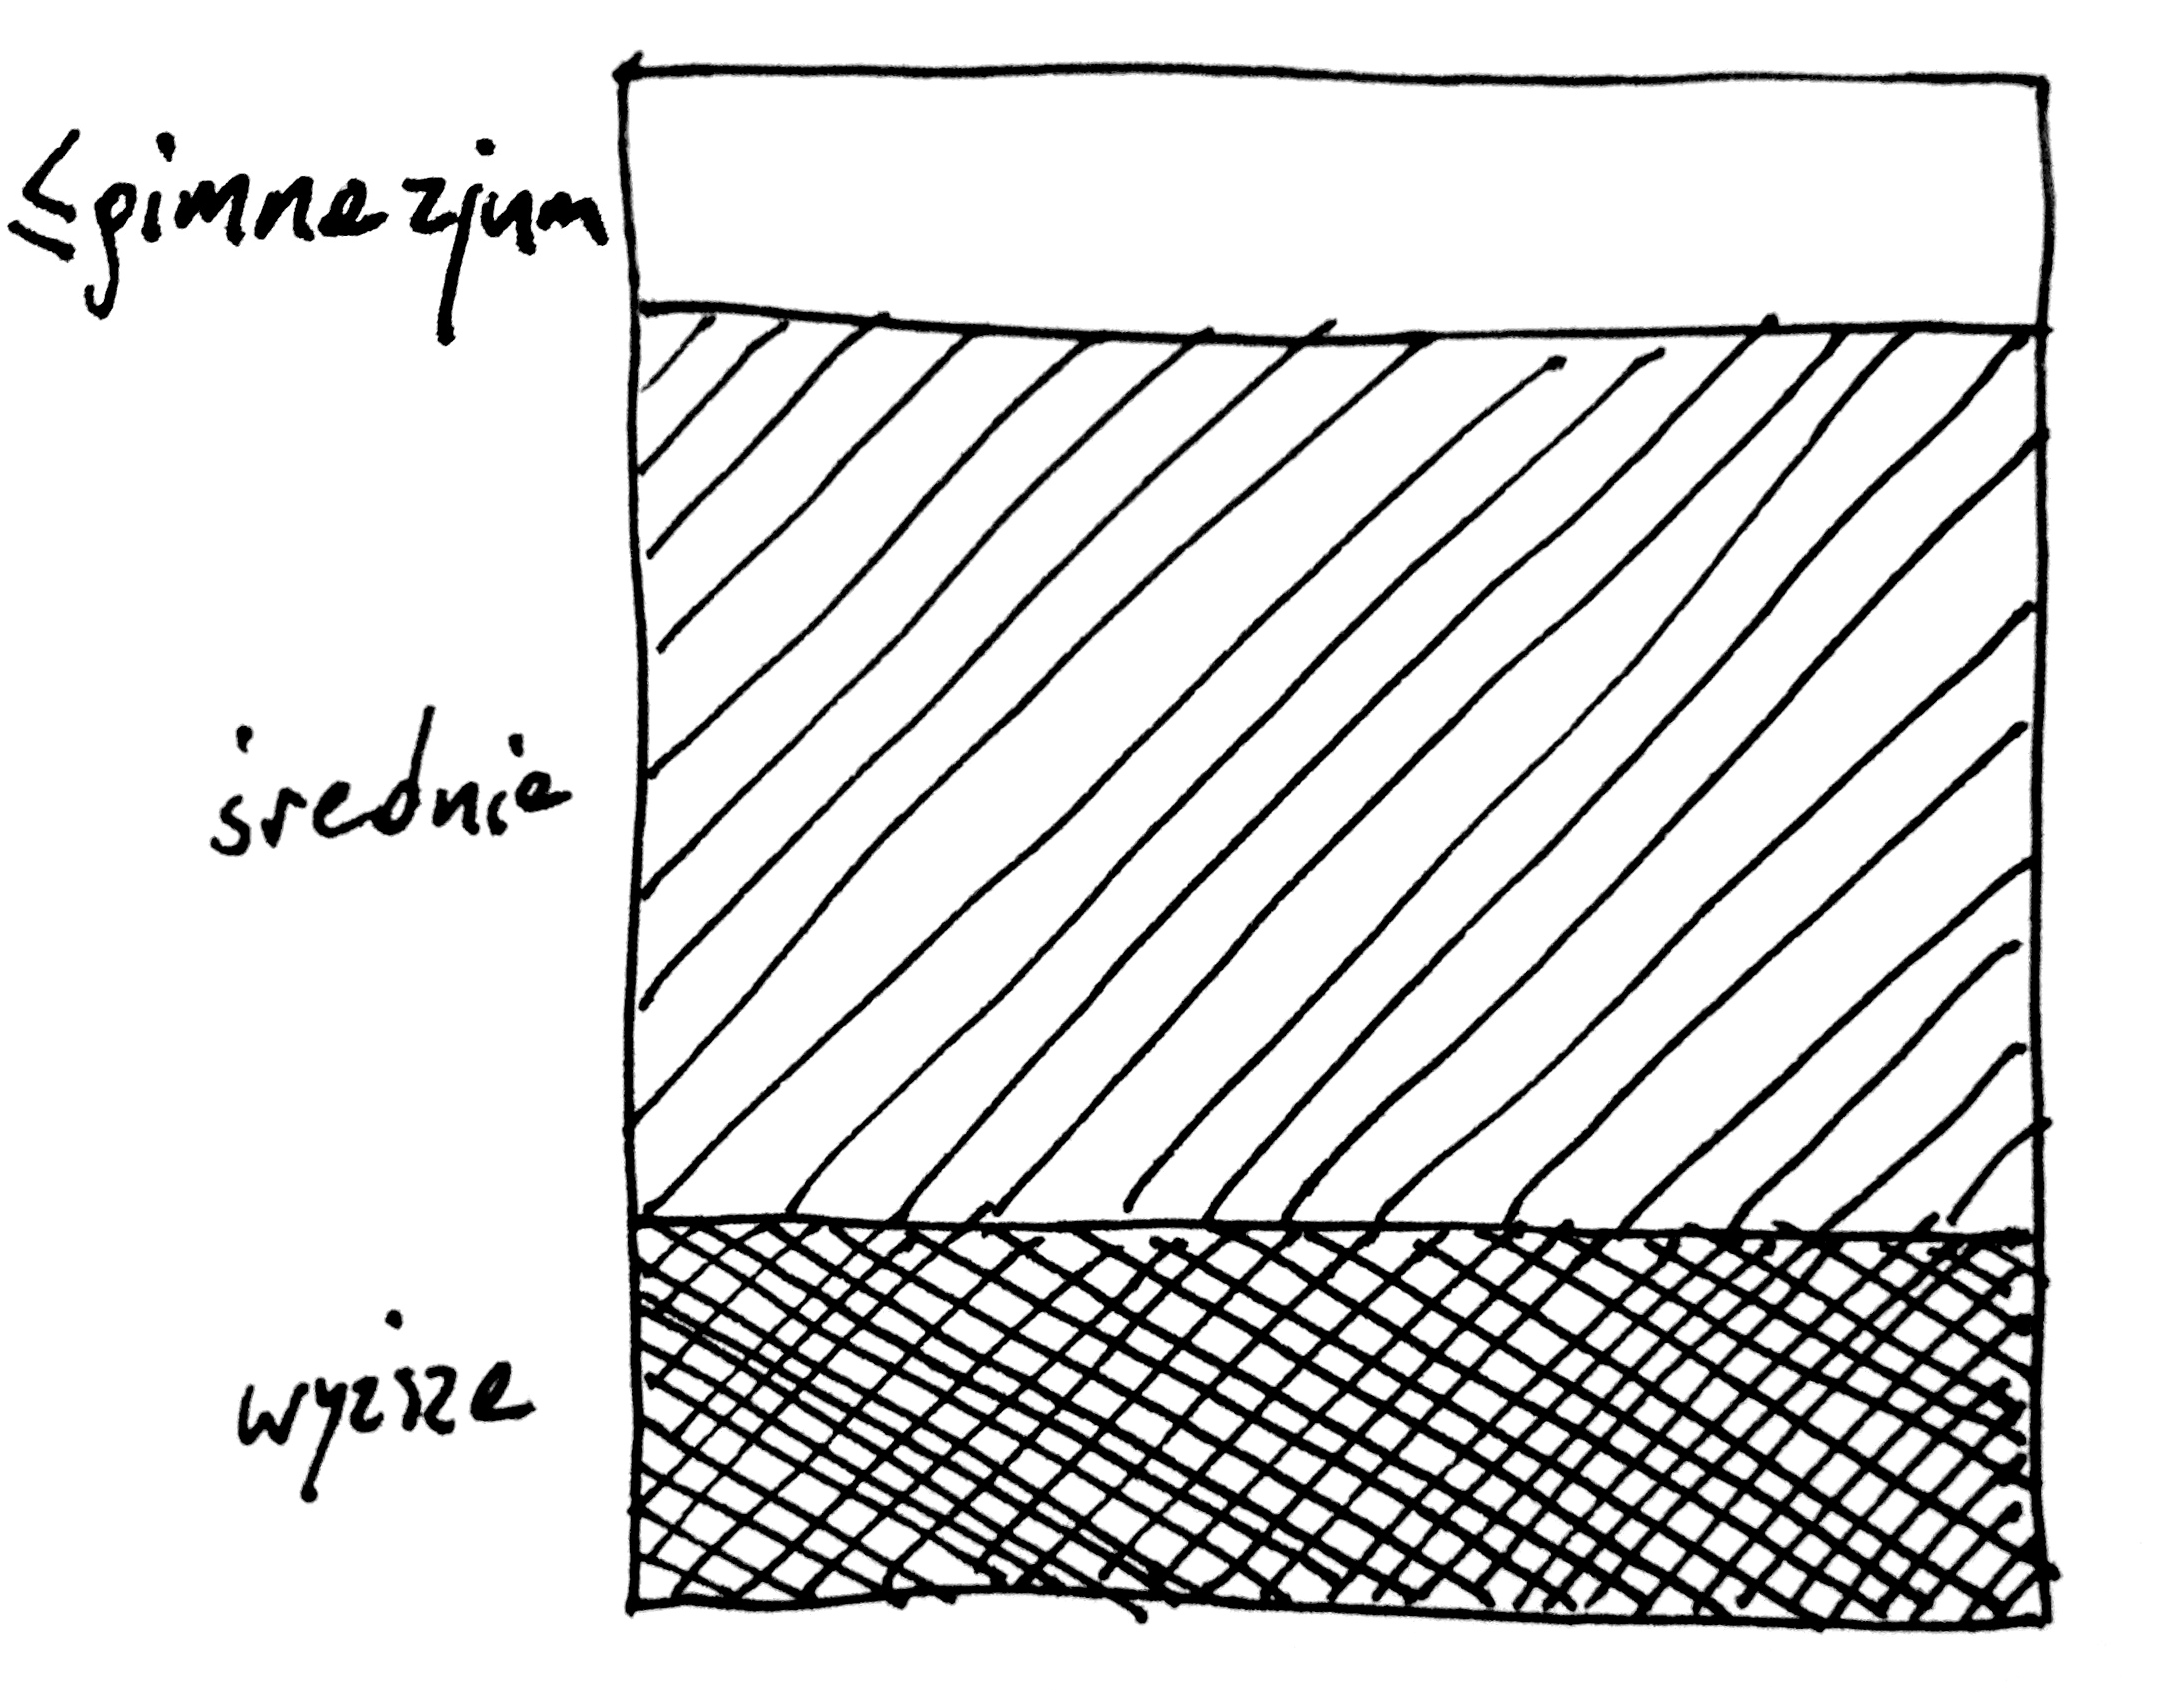 ≤gimnazjum
średnie
wyższe